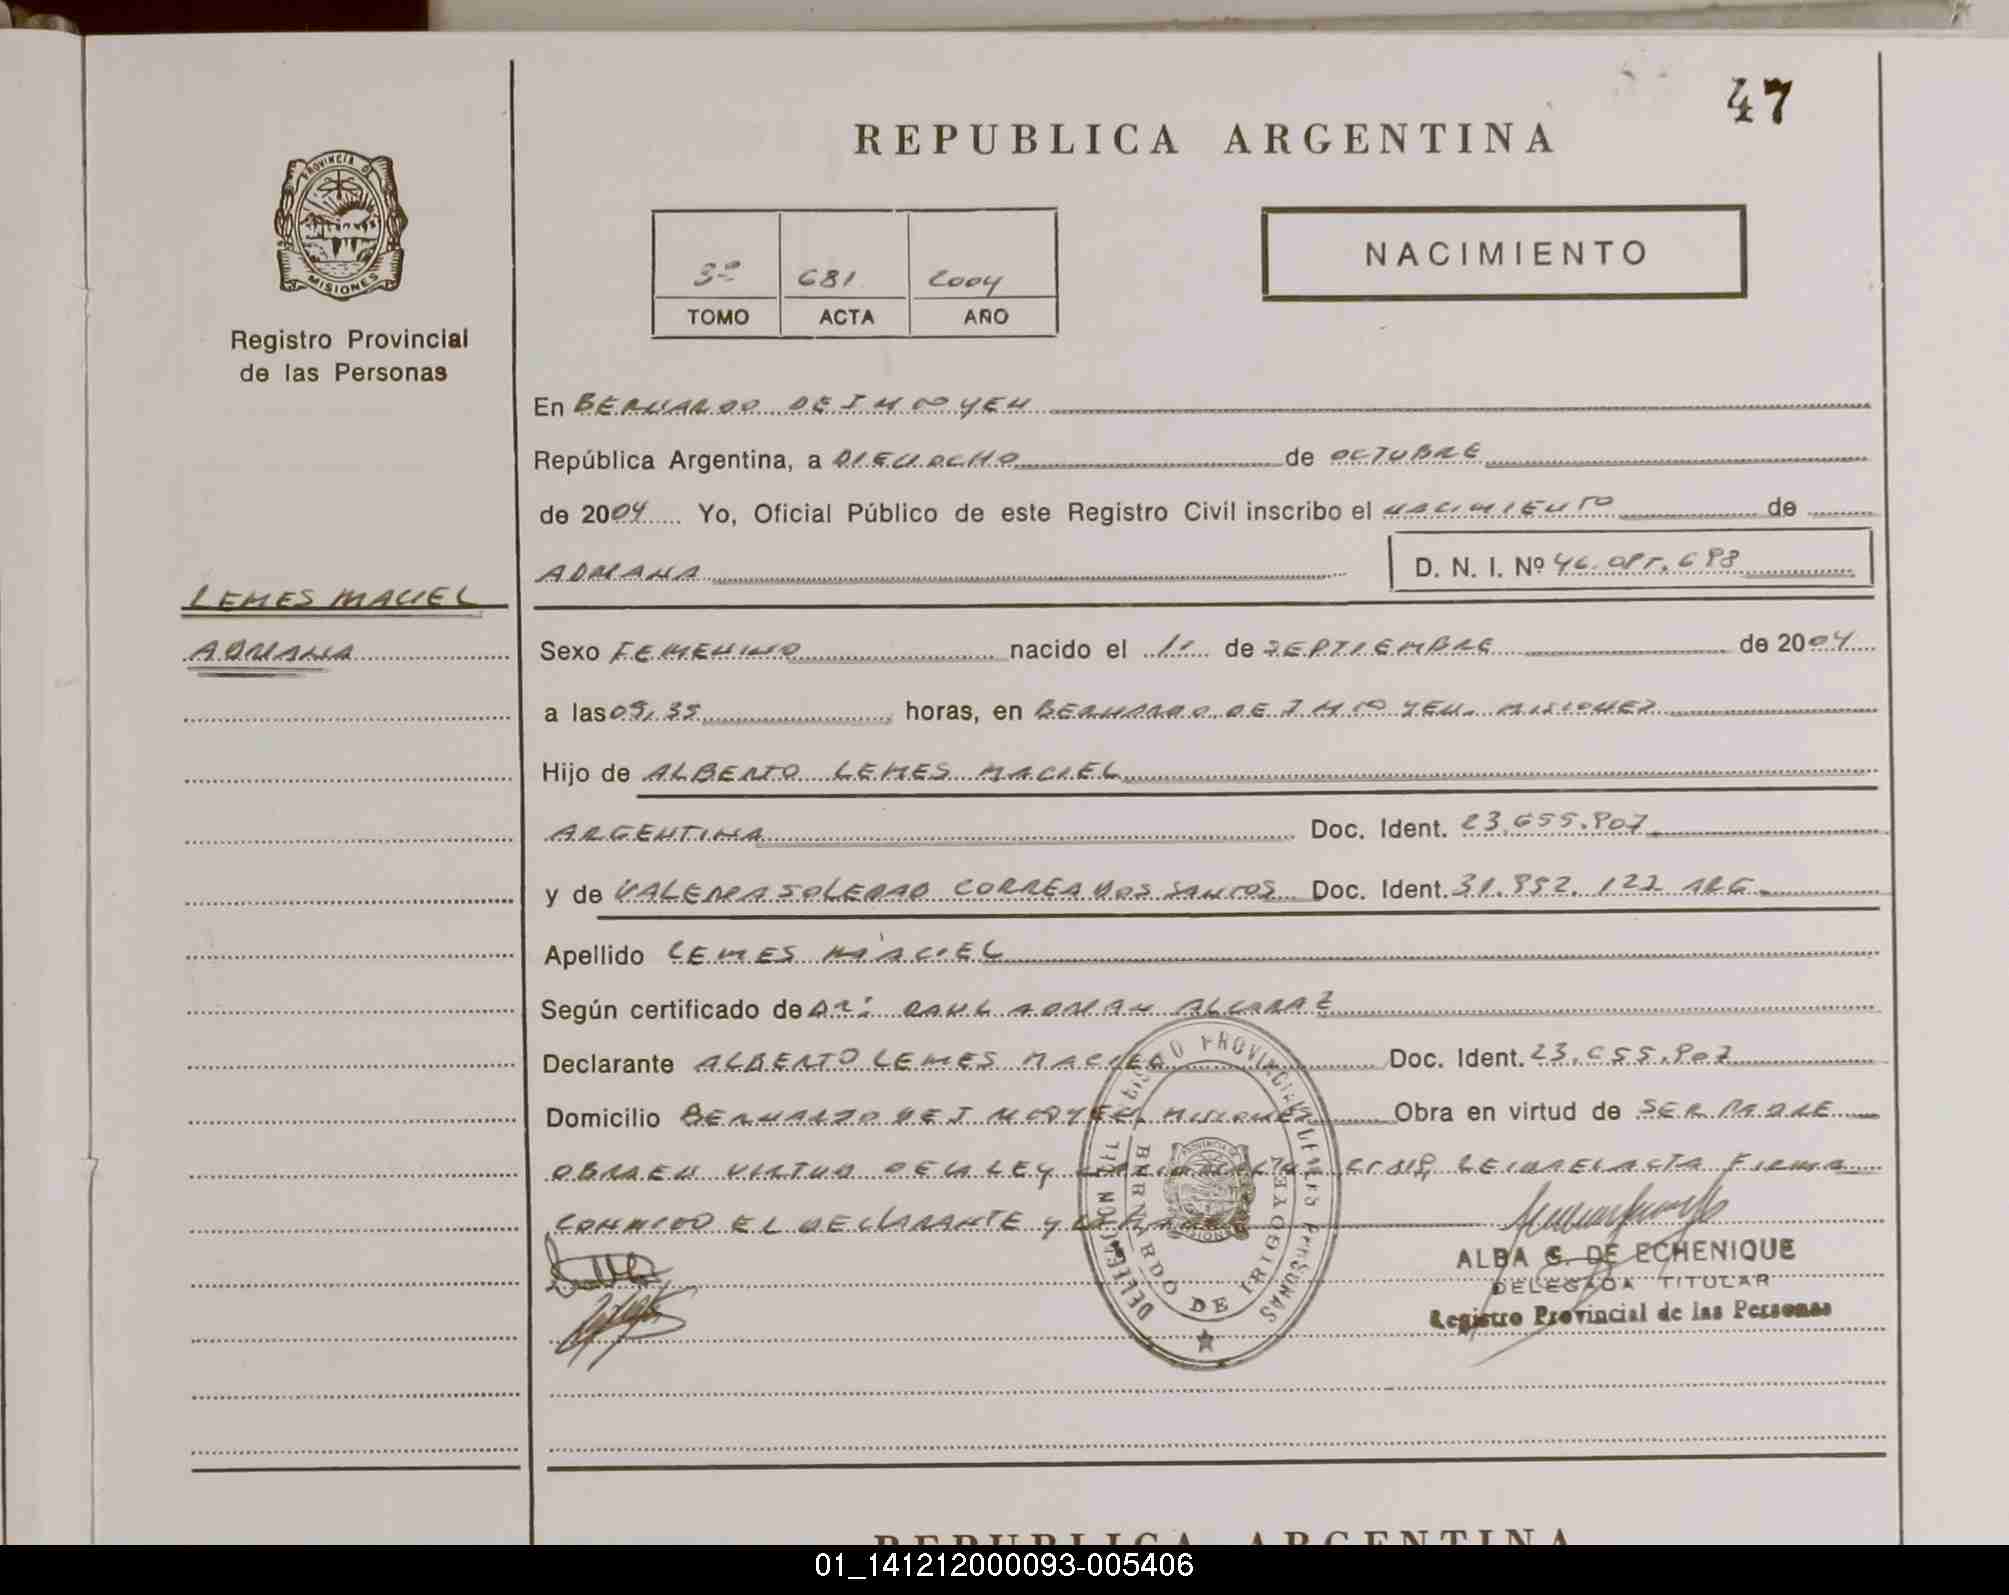 47
REPUBLICA ARGENTINA
PROVINCIA DE
MISIONES
Registro Provincial
de las Personas
NACIMIENTO
3º 681 2004
TOMO ACTA AÑO
En BERNARDO DE IRIGOYEN
República Argentina, a DIECIOCHO de OCTUBRE
de 2004 Yo, Oficial Público de este Registro Civil inscribo el NACIMIENTO de
ADRIANA D. N. I. Nº 46.
LEMES MACIEL
ADRIANA
Sexo FEMENINO nacido el 11 de SEPTIEMBRE de 2004
a las horas, en BERNARDO DE IRIGOYEN. MISIONES
Hijo de ALBERTO LEMES MACIEL
ARGENTINA Doc. Ident. 23.655.907
y de VALERIA SOLEDAD CORREA DOS SANTOS Doc. Ident. ARG
Apellido LEMES MACIEL
Según certificado de Dr: RAUL ADRIAN ALCARAZ
Declarante ALBERTO LEMES MACIEL Doc. Ident. 23.655.907
Domicilio BERNARDO DE IRIGOYEN. MISIONES Obra en virtud de SER PADRE
OBRA EN VIRTUD DE LA LEY LEIDA EL ACTA FIRMA
CONMIGO EL DECLARANTE Y
DELEGACION REGISTRO PROVINCIAL DE LAS PERSONAS
BERNARDO DE IRIGOYEN
ALBA G. DE ECHENIQUE
DELEGADA TITULAR
Registro Provincial de las Personas
REPUBLICA ARGENTINA
01_141212000093-005406